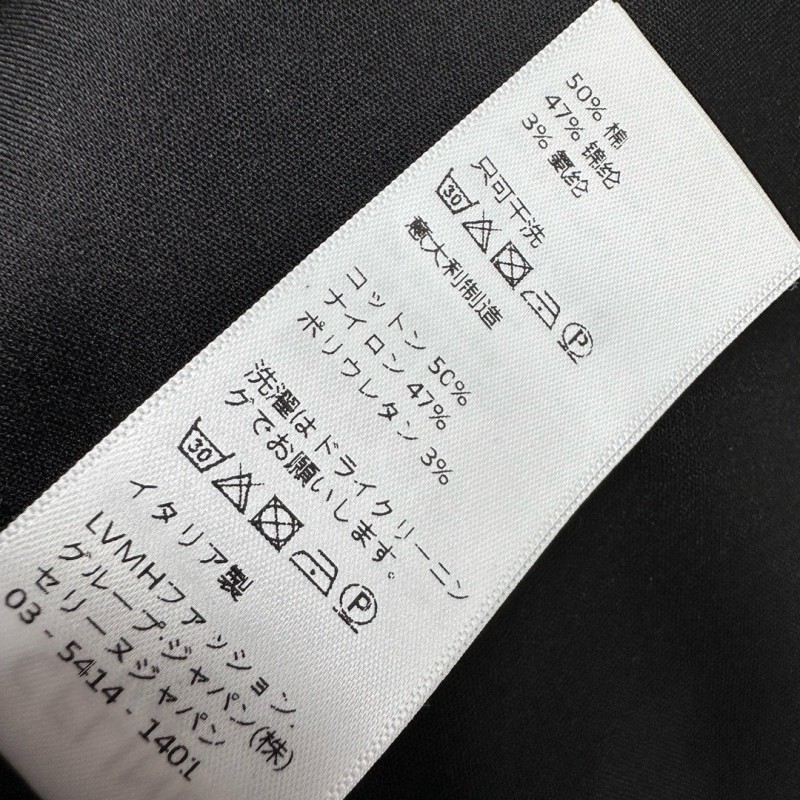 50% 棉
47% 锦纶
3% 氨纶
只可干洗
30 P
意大利制造
コットン 50%
ナイロン 47%
ポリウレタン 3%
洗濯はドライクリーニン
グでお願いします。
30 P
イタリア製
LVMHファッション.
グループ.ジャパン(株)
セリーヌジャパン
03 - 5414 - 1401